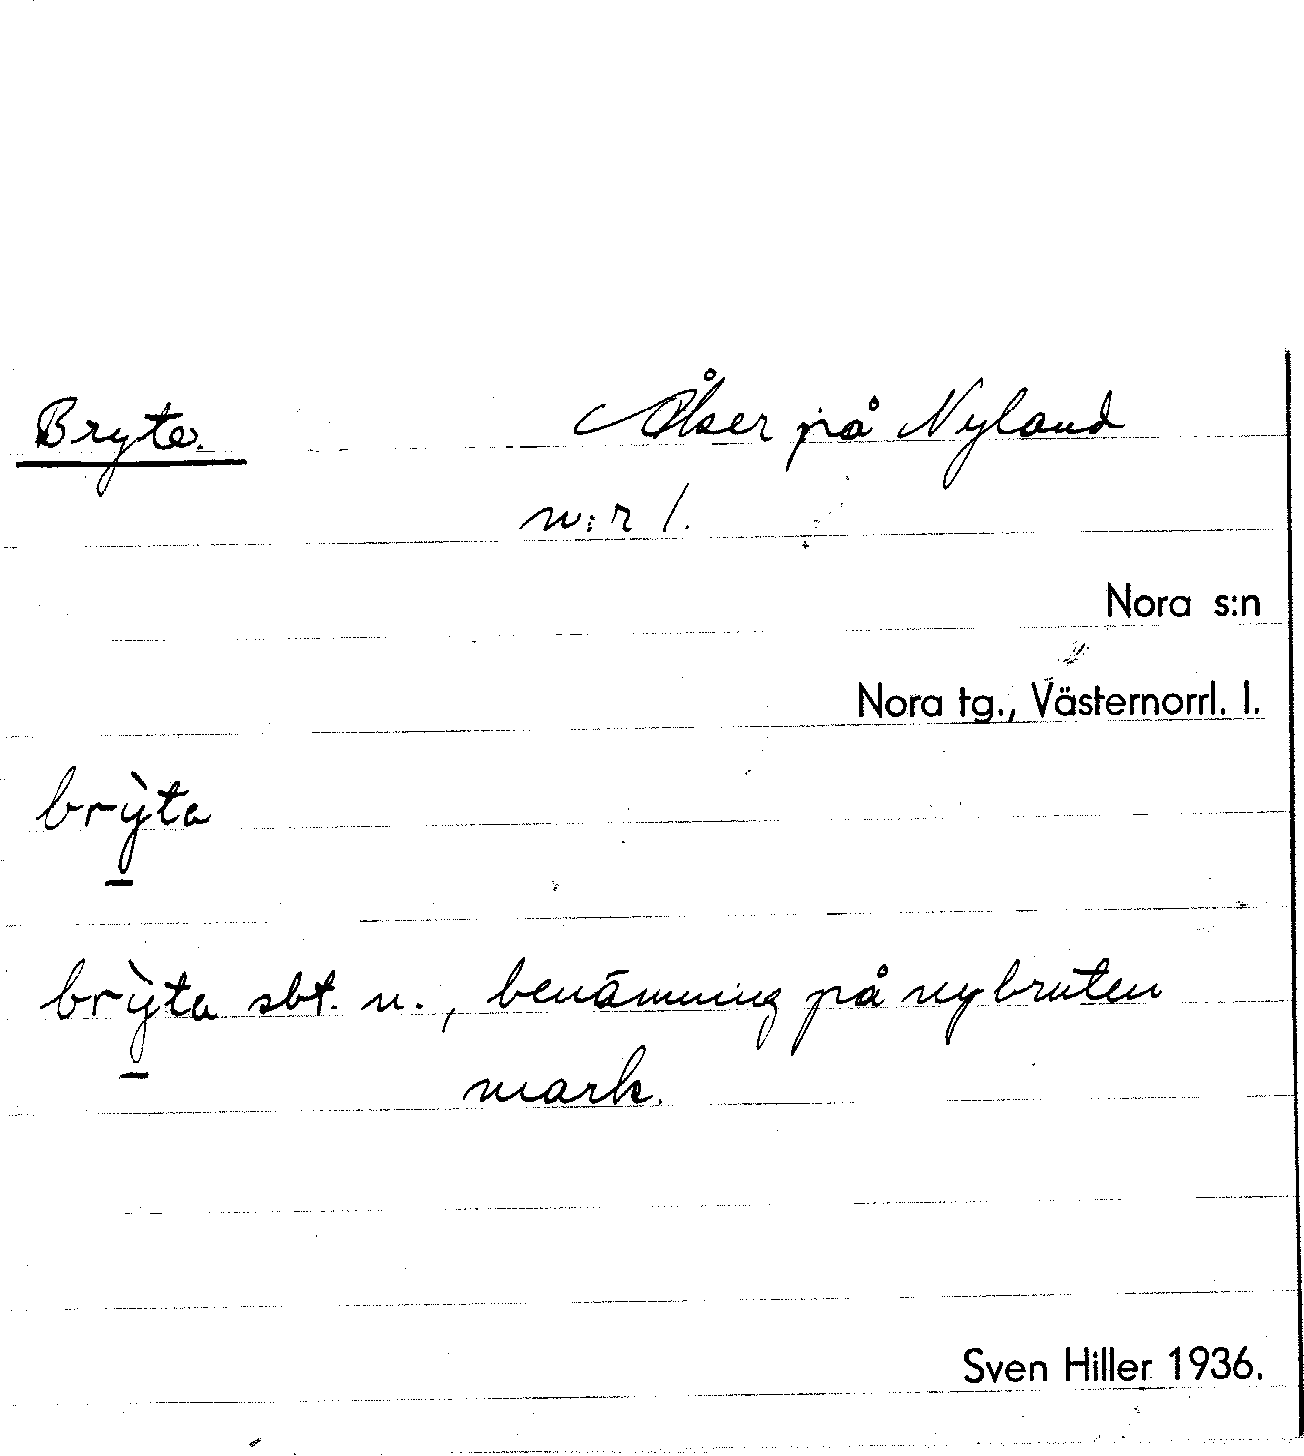 Bryte. Åker på Nyland
n:r 1.
Nora s:n
Nora tg., Västernorrl. l.
brỳta
brỳta sbt. n., benämning på nybruten
mark.
Sven Hiller 1936.